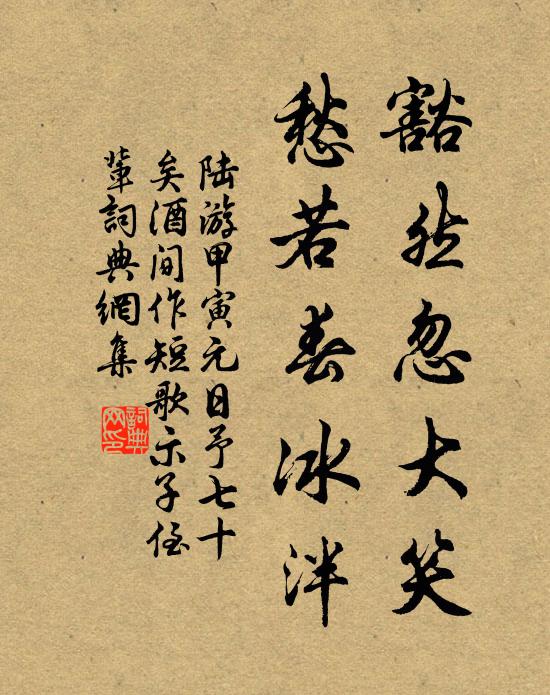 豁然忽大笑
愁若春冰泮
陆游甲寅元日予七十
矣酒间作短歌示子侄
辈詞典網集
詞典
网印